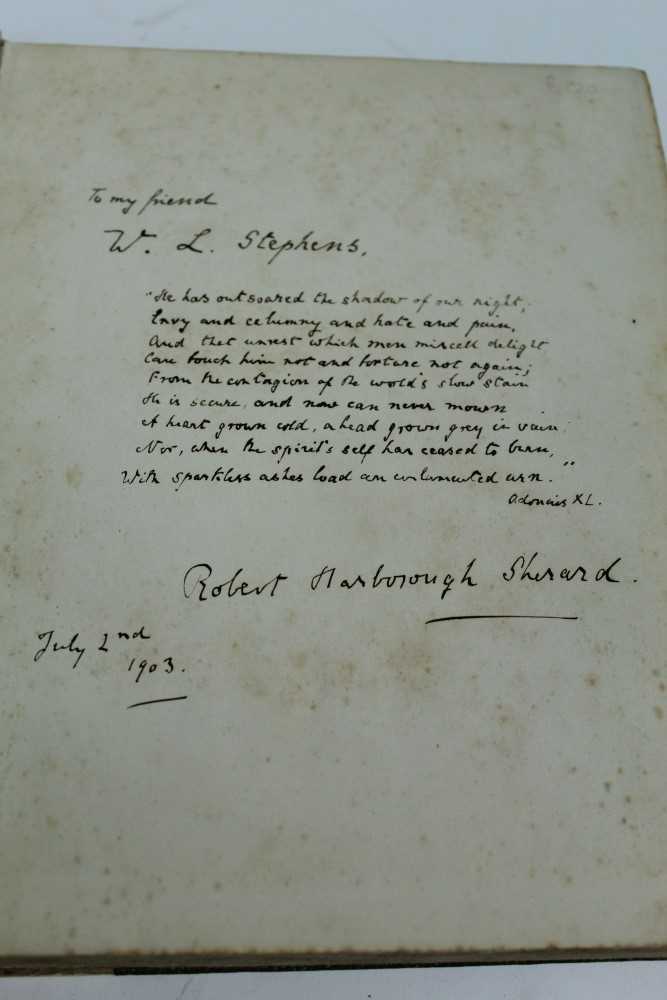 To my friend
W. L. Stephens.
"He has outsoared the shadow of our night;
Envy and calumny and hate and pain,
And that unrest which men miscall delight
Can touch him not and torture not again;
From the contagion of the world's slow stain
He is secure, and now can never mourn
A heart grown cold, a head grown grey in vain;
Nor, when the spirit's self has ceased to burn,
With sparkless ashes load an unlamented urn."
Adonais XL.
Robert Harborough Sherard.
July 2nd
1903.